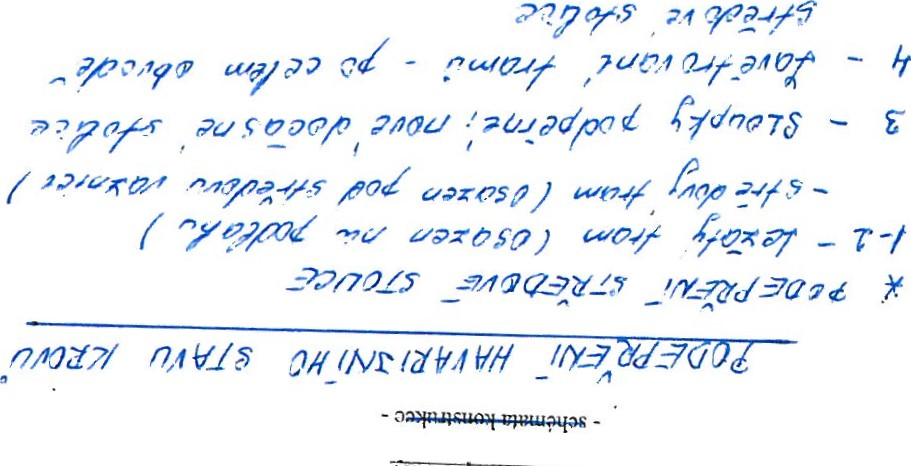 - schémata konstrukce -
PODEPŘENÍ HAVARIJNÍHO STAVU KROVŮ
* PODEPŘENÍ STŘEDOVÉ STOLICE
1-2 - Ležatý trám (osazen na podlahu)
- středový trám (osazen pod středovou vaznici)
3 - Sloupky podpěrné, nové dočasné stolice
4 - Zavětrování trámů - po celém obvodě
středové stolice